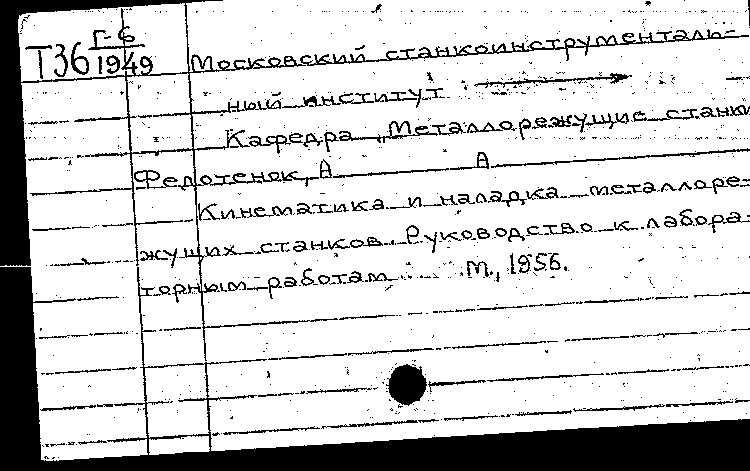 Г-6
Т36 1949 Московский станкоинструменталь-
ный институт
Кафедра „Металлорежущие станки
Федотенок, А А
Кинематика и наладка металлоре-
жущих станков. Руководство к лабора-
торным работам М., 1956.